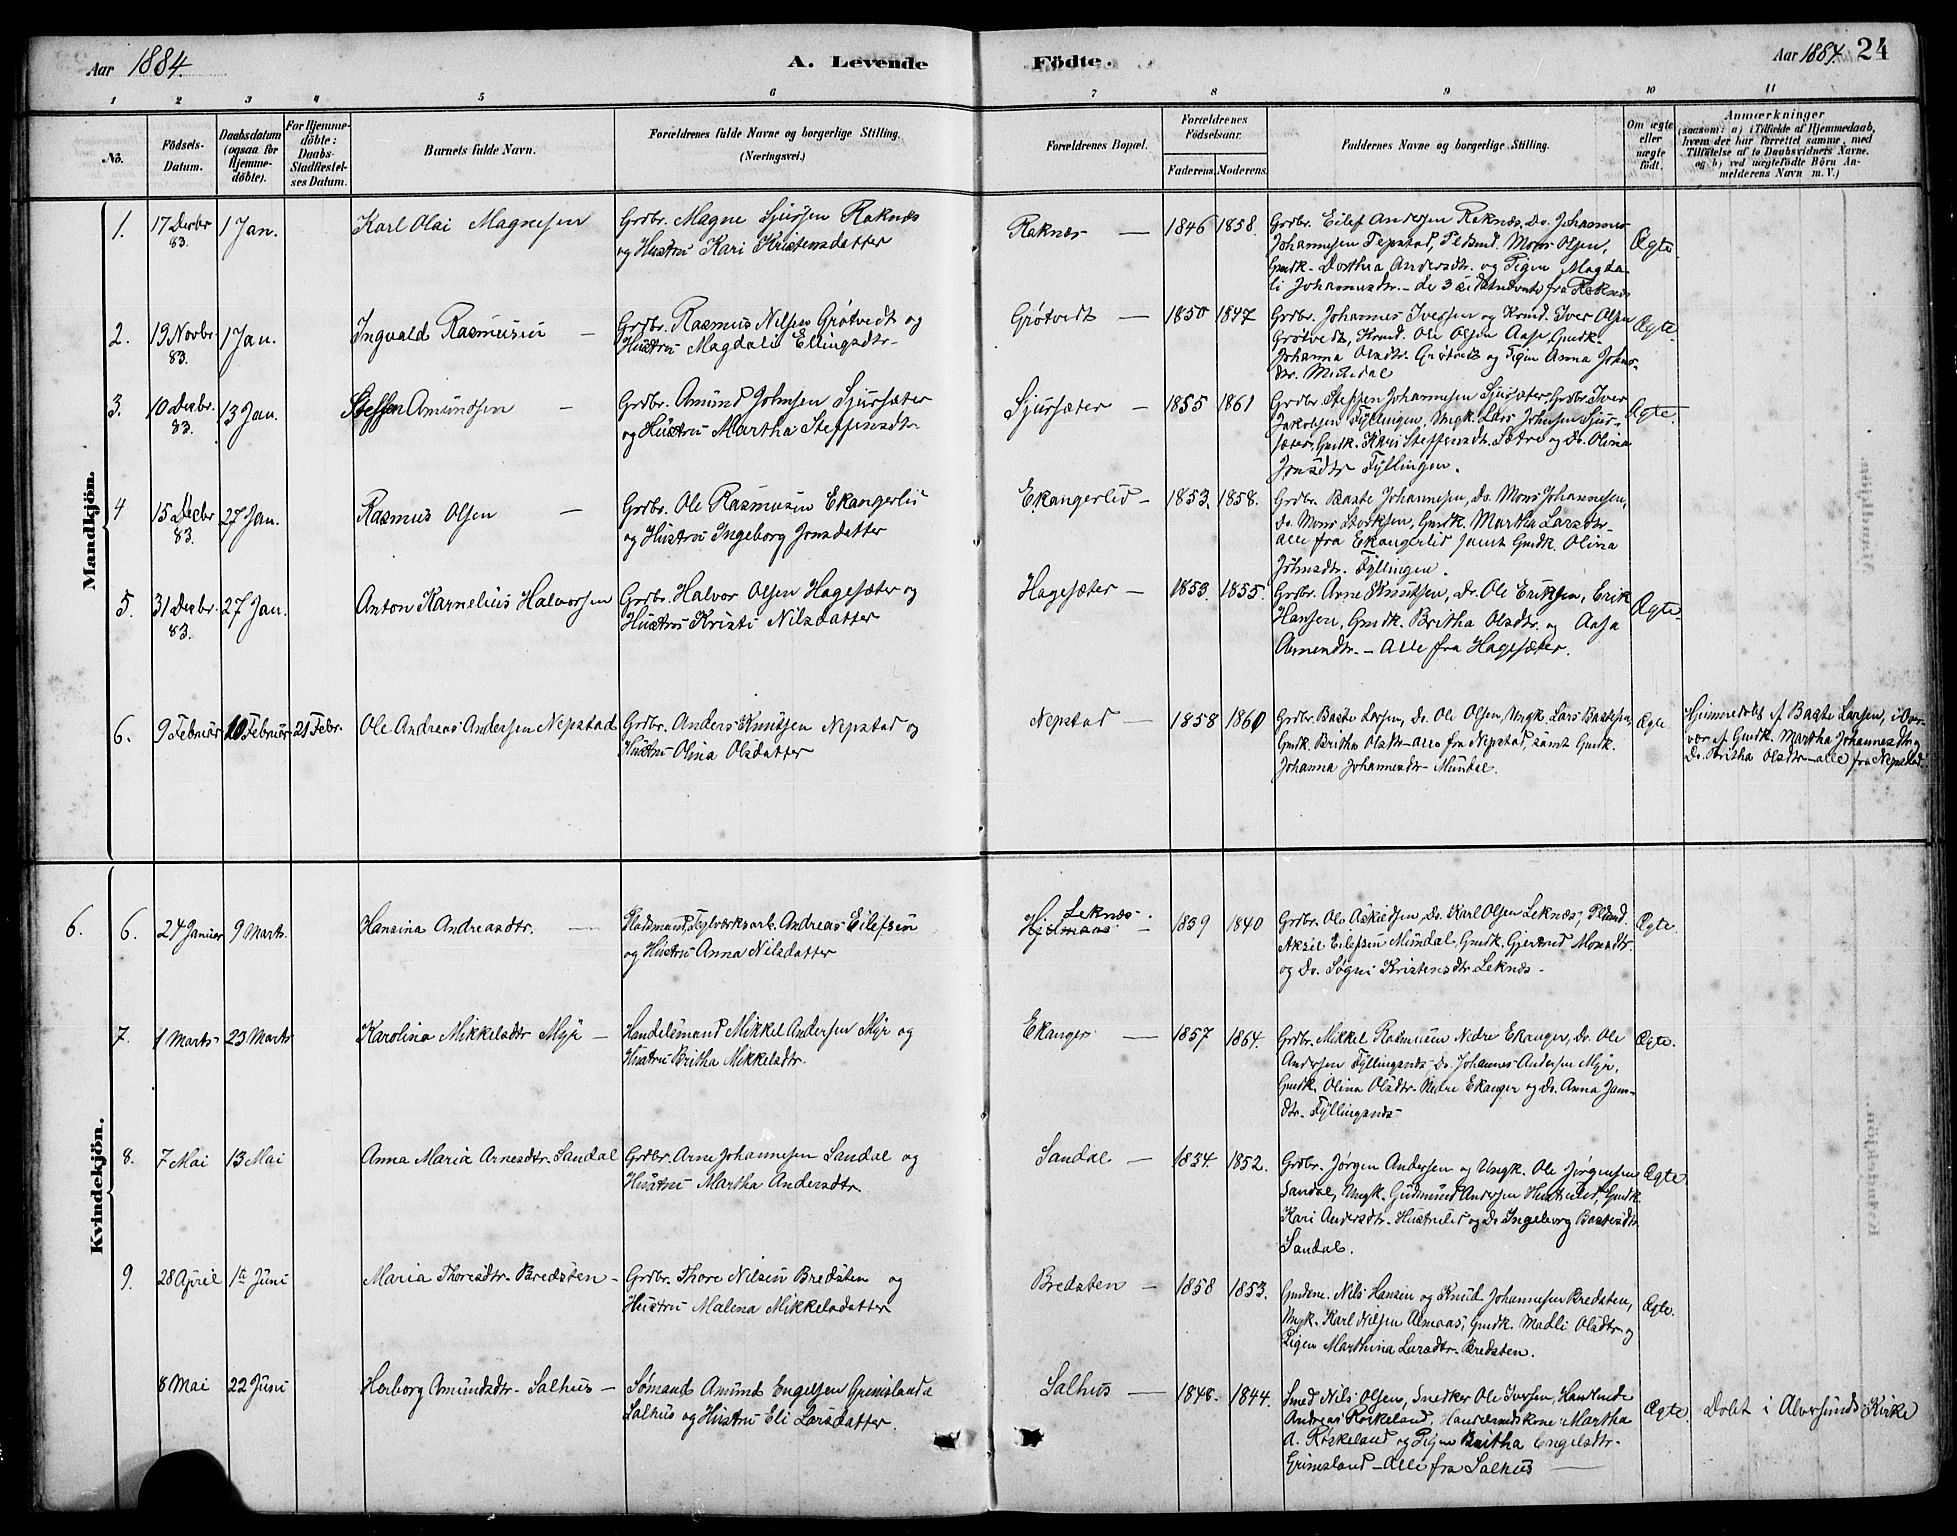 Aar 1884.
A. Levende Födte.
Aar 1884. 24
1 2 3 4 5 6 7 8 9 10 11
No.
Födsels-Datum.
Daabsdatum (ogsaa for Hjemme-döbte).
For Hjemme-döbte: Daabs-Stadfæstel-ses Datum.
Barnets fulde Navn.
Forældrenes fulde Navne og borgerlige Stilling. (Næringsvei.)
Forældrenes Bopæl.
Forældrenes Födselsaar.
Faderens. Moderens.
Faddernes Navne og borgerlige Stilling.
Om ægte eller uægte födt.
Anmærkninger
(saasom: a) i Tilfælde af Hjemmedaab,
hvem der har forrettet samme, med
Tilföielse af to Daabsvidners Navne,
og b) ved uægtefödte Börn An-
melderens Navn m. V.)
Mandkjön.
1. 17 Decbr 83. 1 Jan. Karl Olai Magnesen
Grdbr. Magne Sjursen Raknæs
og Hustru Kari Kristensdatter
Raknæs — 1846 1858.
Grdbr. Eilef Andersen Raknæs, Do. Johannes
Johannesen Tepstad, Pldsmd. Mons Olsen,
Gmdk. Dorthea Andersdtr. og Pigen Magda-
li Johannesdtr. — de 3 sidstnævnte fra Raknæs
Ægte
2. 19 Novbr. 83. 1 Jan. Ingvald Rasmussen —
Grdbr. Rasmus Nilsen Grøtvedt og
Hustru Magdali Ellingsdtr.
Grøtvedt — 1850 1847
Grdbr. Johannes Iversen og Krmd. Iver Olsen
Grøtvedt, Krmd. Ole Olsen Aase, Gmdk.
Johanna Olsdtr. Grøtvedt og Pigen Anna Johns-
dtr. Midtdal
Ægte.
3. 10 Decbr. 83. 13 Jan. Steffen Amundsen —
Grdbr. Amund Johnsen Sjursæter
og Hustru Martha Steffensdtr.
Sjursæter — 1855 1861
Grdbr. Steffen Johannesen Sjursæter, Grdbr. Iver
Jakobsen Fyllingen, Ungk. Lars Johnsen Sjur-
sæter, Gmdk. Kari Steffensdtr. Sætre og Do. Olina
Jonsdtr Fyllingen.
Ægte.
4 15 Decbr 83. 27 Jan. Rasmus Olsen —
Grdbr. Ole Rasmussen Ekangerlid
og Hustru Ingeborg Jonsdatter
Ekangerlid — 1853. 1858.
Grdbr. Baste Johannesen, Do. Mons Johannesen,
Do. Mons Storksen, Gmdk. Martha Larsdtr.
alle fra Ekangerlid samt Gmdk. Olina
Johnsdtr. Fyllingen.
5. 31 Decbr. 83. 27 Jan. Anton Kornelius Halvorsen
Grdbr. Halvor Olsen Hagesæter og
Hustru Kristi Nilsdatter
Hagesæter — 1853. 1855.
Grdbr. Arne Knutsen, Do. Ole Eriksen, Erik
Hansen, Gmdk. Britha Olsdtr. og Aasa
Arnesdtr. — Alle fra Hagesæter.
Ægte.
6. 9 Februar 10 Februar 21 Febr. Ole Andreas Andersen Nepstad
Grdbr. Anders Knutsen Nepstad og
Hustru Olina Olsdatter
Nepstad — 1858 1860
Grdbr. Baste Larsen, Do. Ole Olsen, Ungk. Lars Bastesen,
Gmdk. Britha Olsdtr — alle fra Nepstad, samt Gmdk.
Johanna Johannesdtr. Mundal.
Ægte
Hjemmedøbt af Baste Larsen, i Over-
vær af Gmdk. Martha Johannesdtr og
Do. Britha Olsdtr — alle fra Nepstad.
Kvindekjön.
6. 6. 24 Januar 9 Marts. Hansina Andreasdtr. —
Pladsmand, Teglværksarb. Andreas Eilefsen
og Hustru Anna Nilsdatter
Leknæs. Hjelmaas — 1839 1840
Grdbr. Ole Askildsen, Do. Karl Olsen Leknæs, Plsmd.
Aksel Eilefsen Mundal, Gmdk. Gjertrud Monsdtr.
og Do. Søgni Kristensdtr. Leknæs.
Ægte.
7. 1 Marts 23 Marts Karolina Mikkelsdtr Myr —
Handelsmand Mikkel Andersen Myr og
Hustru Britha Mikkelsdtr.
Ekanger — 1857 1864.
Grdbr. Mikkel Rasmussen Nedre Ekanger, Do. Ole
Andersen Fyllingsnæs, Do. Johannes Andersen Myr,
Gmdk. Olina Olsdtr. Nedre Ekanger og Do. Anna Jans-
dtr. Fyllingsnæs
Ægte.
8. 7 Mai 13 Mai Anna Maria Arnesdtr. Sandal
Grdbr. Arne Johannesen Sandal og
Hustru Martha Andersdtr.
Sandal — 1834. 1852.
Grdbr. Jørgen Andersen og Ungk. Ole Jørgensen
Sandal, Ungk. Gudmund Andersen Hustulid, Gmdk.
Kari Andersdtr. Hustrulid og Do Ingeborg Bastesdtr
Sandal.
Ægte.
9. 28 April 1ste Juni Maria Thoresdtr. Bredsten —
Grdbr. Thore Nilsen Bredsten og
Hustru Malena Mikkelsdatter
Bredsten — 1858 1853.
Gmdene. Nils Hansen og Knud Johannesen Bredsten,
Ungk. Karl Nilsen Almaas, Gmdk. Madli Olsdtr. og
Pigen Marthina Larsdtr. Bredsten.
Ægte.
8 Mai 22 Juni Herborg Amundsdtr. Salhus —
Sømand Amund Engelsen Grimsland
Salhus og Hustru Eli Larsdatter.
Salhus — 1848. 1844.
Smed Nils Olsen, Snedker Ole Iversen, Handlende
Andreas Rørkeland, Handelsmdskone Martha
A. Rørkeland og Pigen Britha Engelsdtr.
Grimsland — Alle fra Salhus —
Ægte
Døbt i Alversunds Kirke